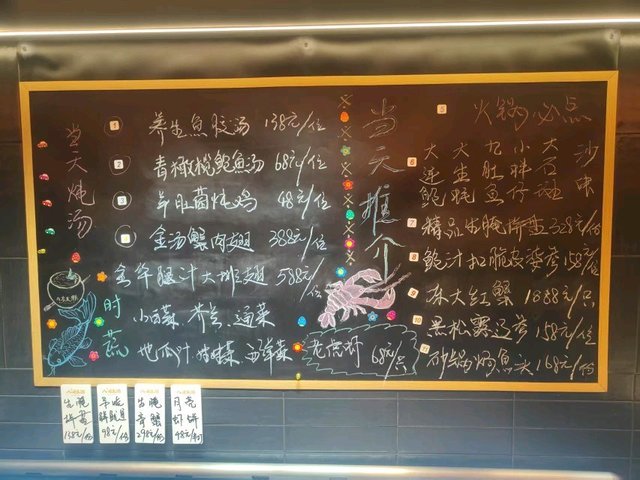 当天炖汤
1 养生鱼胶汤 138元/位
2 青橄榄鲍鱼汤 68元/位
3 羊肚菌炖鸡 48元/位
金汤蟹肉翅 388元/位
金华腿汁大排翅 588元/位
时蔬
小白菜 芥兰 通菜
地瓜叶 西洋菜
当天推介
老虎虾 68元/只
5 火锅必点
6 大连鲍 大生蚝 九肚鱼 小 仔 大石 沙虫
7 精品生腌拼盘 328元/份
8 鲍汁扣脆皮婆参 158元/位
9 冻大红蟹 1088元/只
黑松露 158元/位
砂锅焗鱼头 168元/份
生腌 138元/份
98元/份
生腌膏蟹 298元/份
月亮虾饼 98元/份